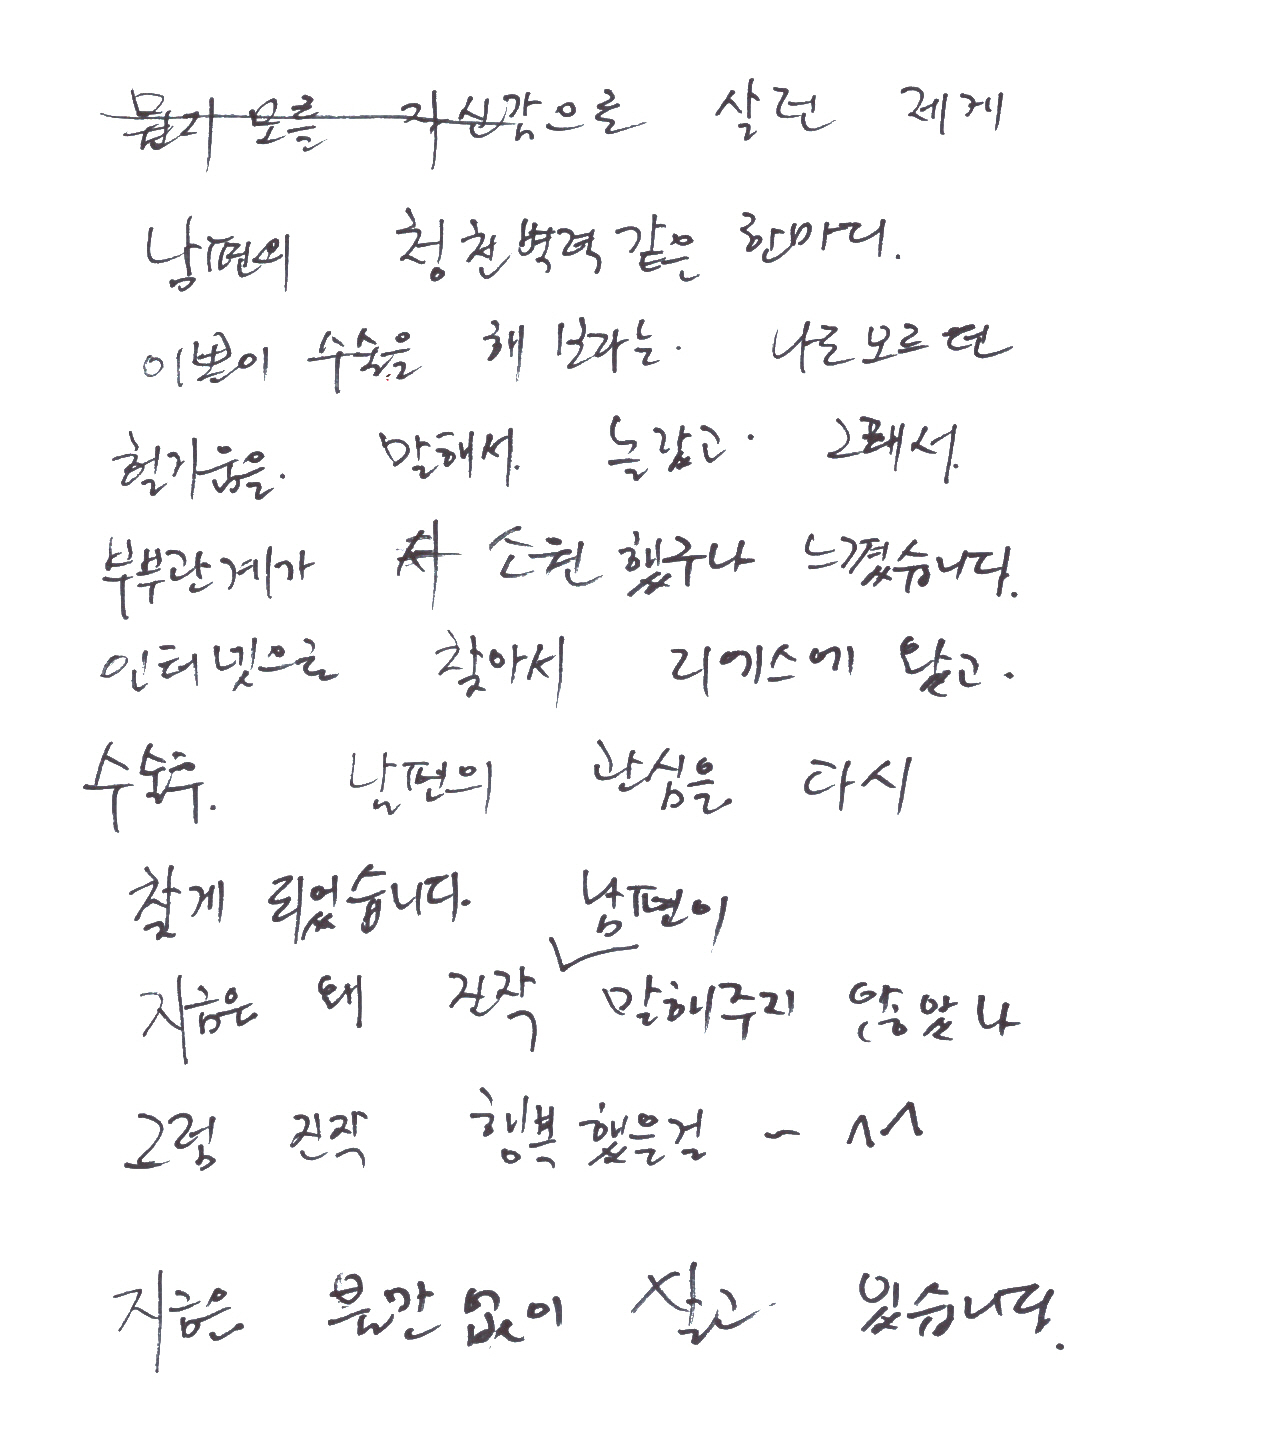 뭔지 모를 자신감으로 살던 제게
남편의 청천벽력같은 한마디.
이쁜이 수술을 해 보라는. 나도모르던
헐거움을. 말해서. 놀랐고. 그래서.
부부관계가 소원했구나 느꼈습니다.
인터넷으로 찾아서 리에스에 왔고.
수술후. 남편의 관심을 다시
찾게 되었습니다. 남편이
지금은 왜 진작 말해주지 않았나
그럼 진작 행복했을걸 ~ ^^
지금은 불만없이 살고 있습니다.